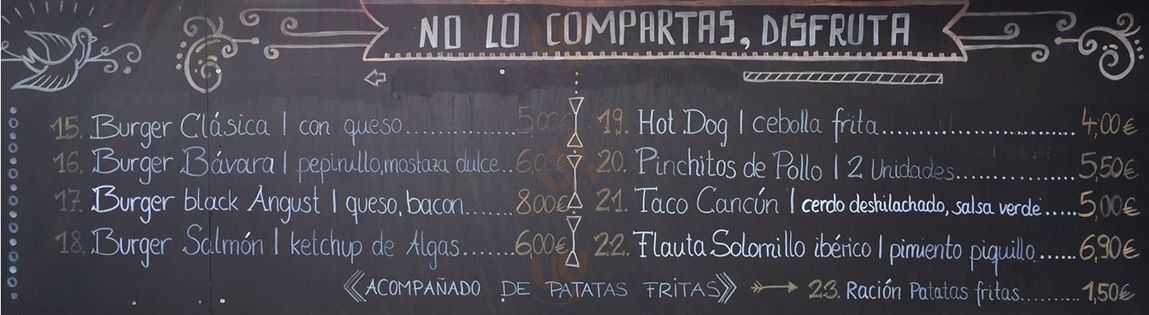 NO LO COMPARTAS, DISFRUTA
15. Burger Clásica | con queso..............5,00€
16. Burger Bávara | pepinillo, mostaza dulce..6,00€
17. Burger black Angust | queso, bacon.......8,00€
18. Burger Salmón | ketchup de Algas.......6,00€
19. Hot Dog | cebolla frita.............................4,00€
20. Pinchitos de Pollo | 2 Unidades..............5,50€
21. Taco Cancún | cerdo deshilachado, salsa verde.....5,00€
22. Flauta Solomillo ibérico | pimiento piquillo.....6,90€
《ACOMPAÑADO DE PATATAS FRITAS》
23. Ración Patatas fritas.........1,50€